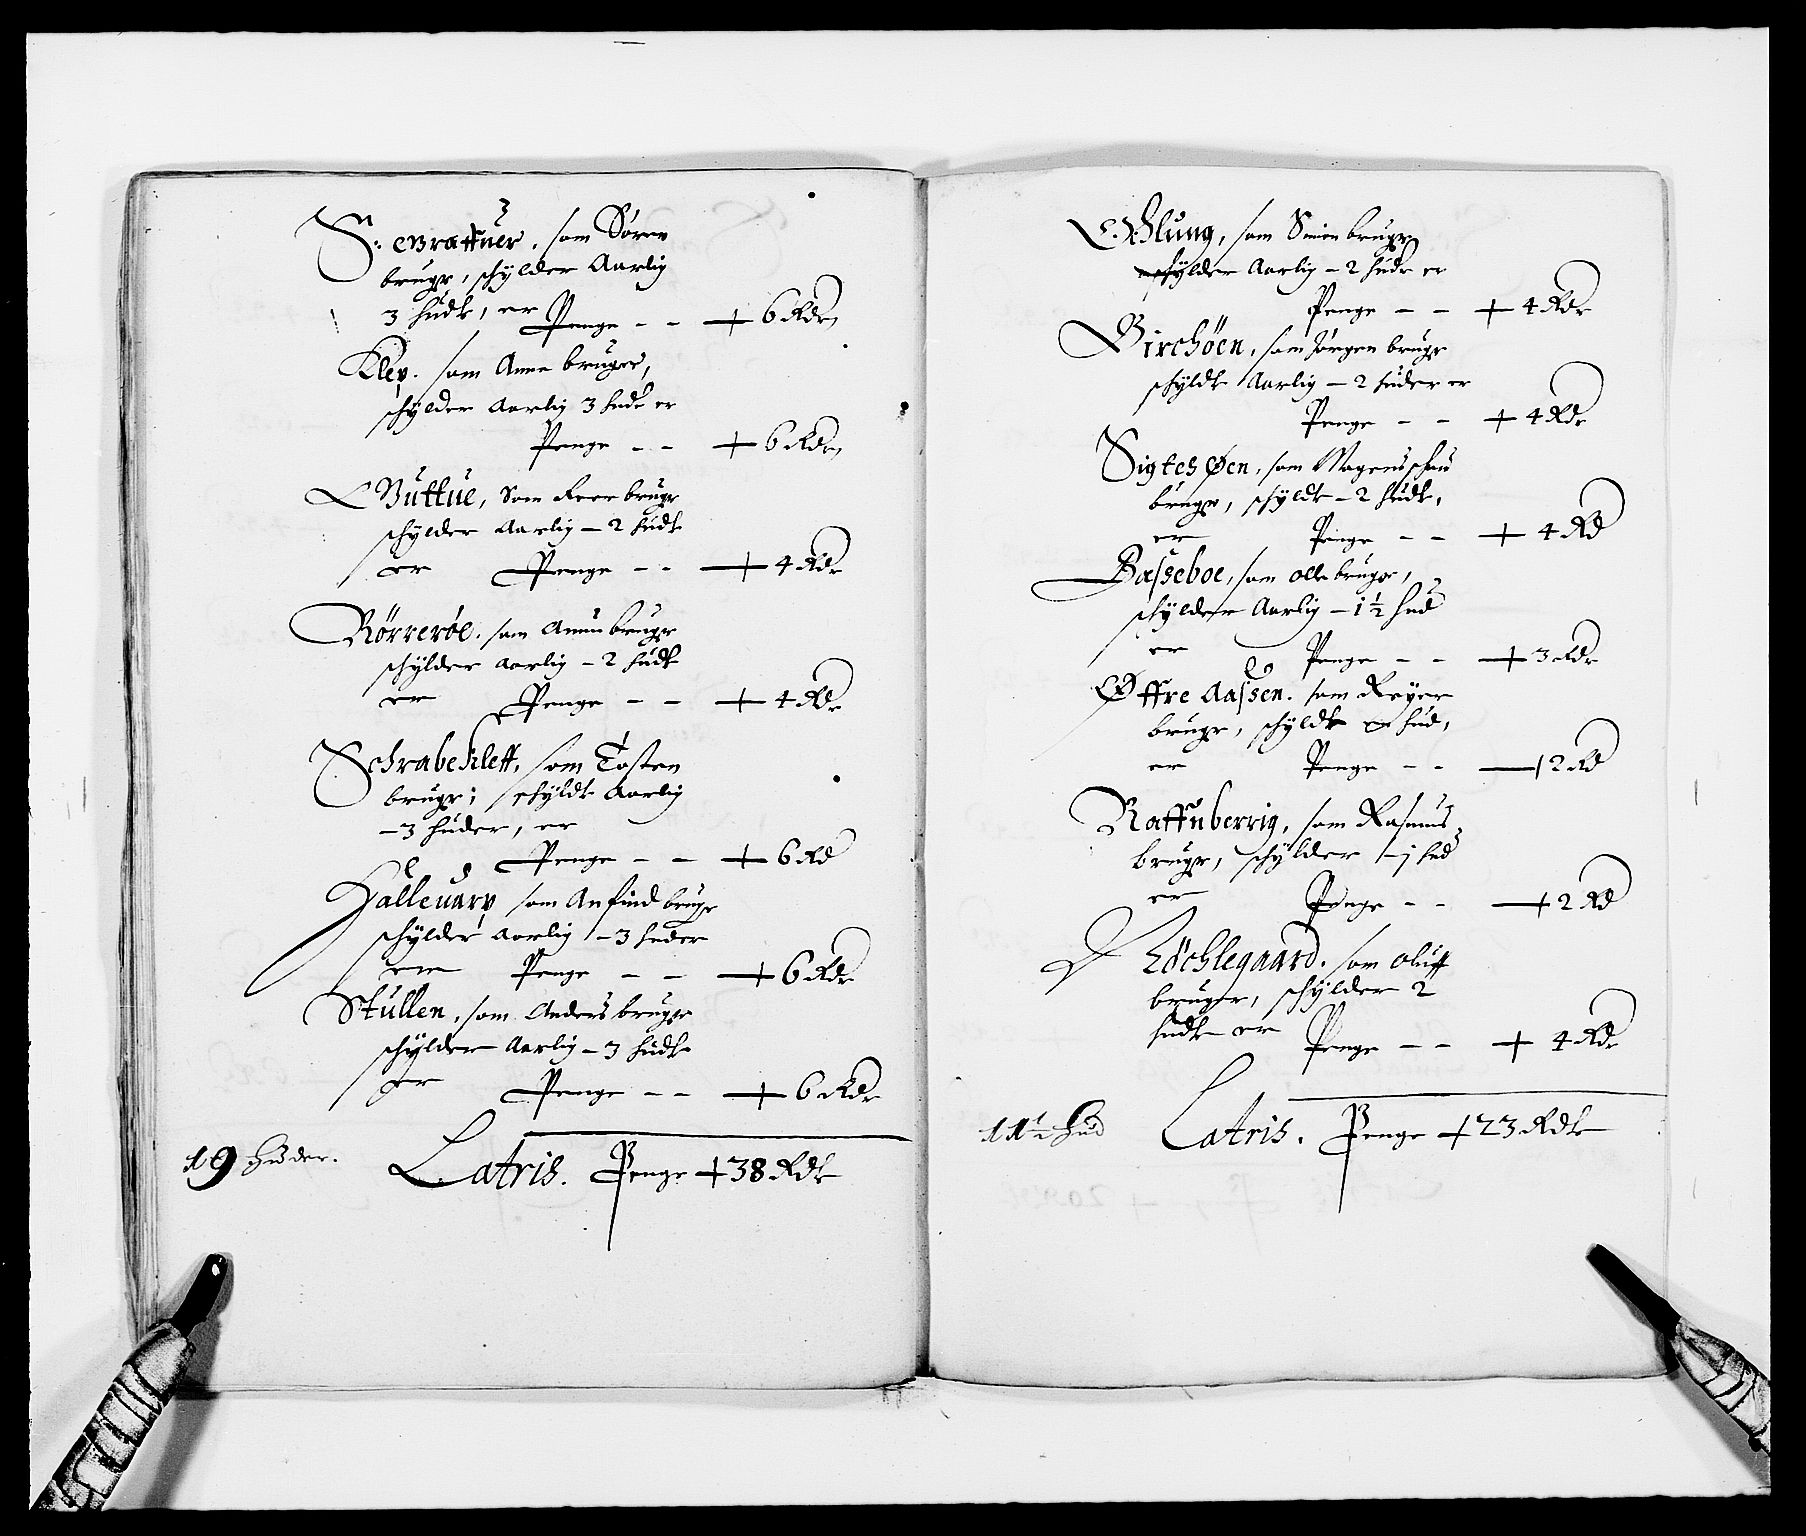 S: Brattuer. som Sören
bruger, schylder Aarlig
3 huder, er Penge - - + 6 Rdr
Klev. som Anne bruger,
schylder Aarlig 3 hude er
Penge - - + 6 Rdr
Buttue, som Peer bruger
schylder Aarlig - 2 huder
er Penge - - + 4 Rdr
Rörreröe. som Amun bruger
schylder aarlig - 2 huder
er Penge - - + 4 Rdr
Schrabeklett, som Tosten
bruger; schylder Aarlig
- 3 huder, er
Penge - - + 6 Rd
Halleuarp som Anfind bruger
schylder aarlig - 3 huder
er Penge - - + 6 Rdr
Stullen, som Anders bruger
schylder Aarlig - 3 huder
er Penge - - + 6 Rdr
19 Huder. Latris. Penge + 38 Rdr
som Simen bruger
schylder Aarlig - 2 huder er
Penge - - + 4 Rdr
Birchöen, som Jörgen bruger
schylder Aarlig - 2 huder er
Penge - - + 4 Rdr
Sigtesøen, som Mogens
bruger, schylder - 2 huder,
er Penge - - + 4 Rd
Basseboe, som Olle bruger,
schylder Aarlig - 1½ hud
er Penge - - + 3 Rdr
Øffre Aassen. som Reyer
bruger, schylder en hud,
er Penge - - + 2 Rd
Raffnberrig, som Rasmus
bruger, schylder - 1 hud
er Penge - - + 2 Rd
Löchlegaard. som Oluff
bruger, schylder 2
huder er Penge - - + 4 Rdr
11½ Hud Latris. Penge + 23 Rdr